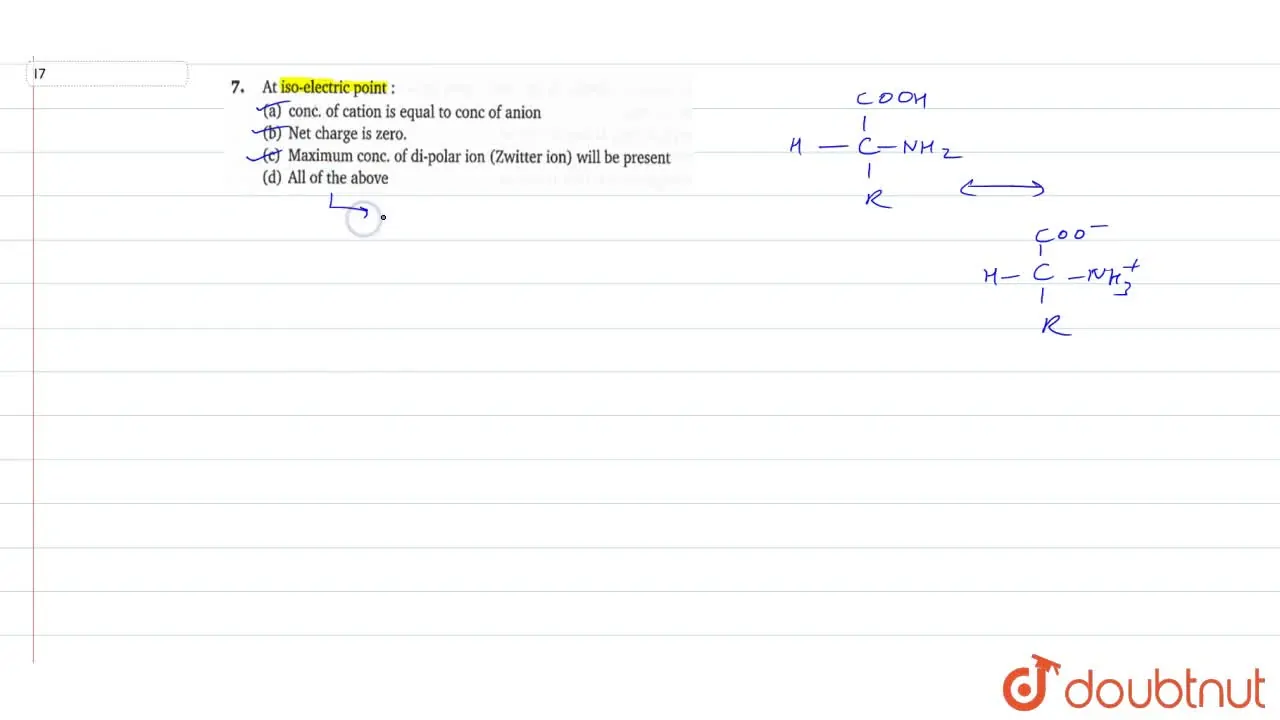 17
7. At iso-electric point :
(a) conc. of cation is equal to conc of anion
(b) Net charge is zero.
(c) Maximum conc. of di-polar ion (Zwitter ion) will be present
(d) All of the above
COOH
H — C — NH2
R
COO−
H — C — NH3+
R
doubtnut